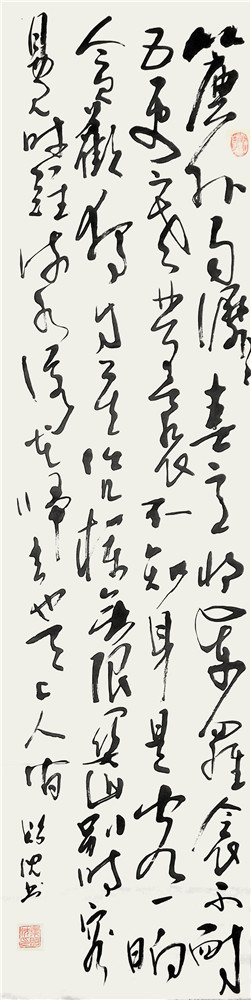 簾外雨潺潺春意將闌羅衾不耐
五更寒夢裏不知身是客一晌
貪歡獨自莫憑欄無限關山別時容
易見時難流水落花歸去也天上人間